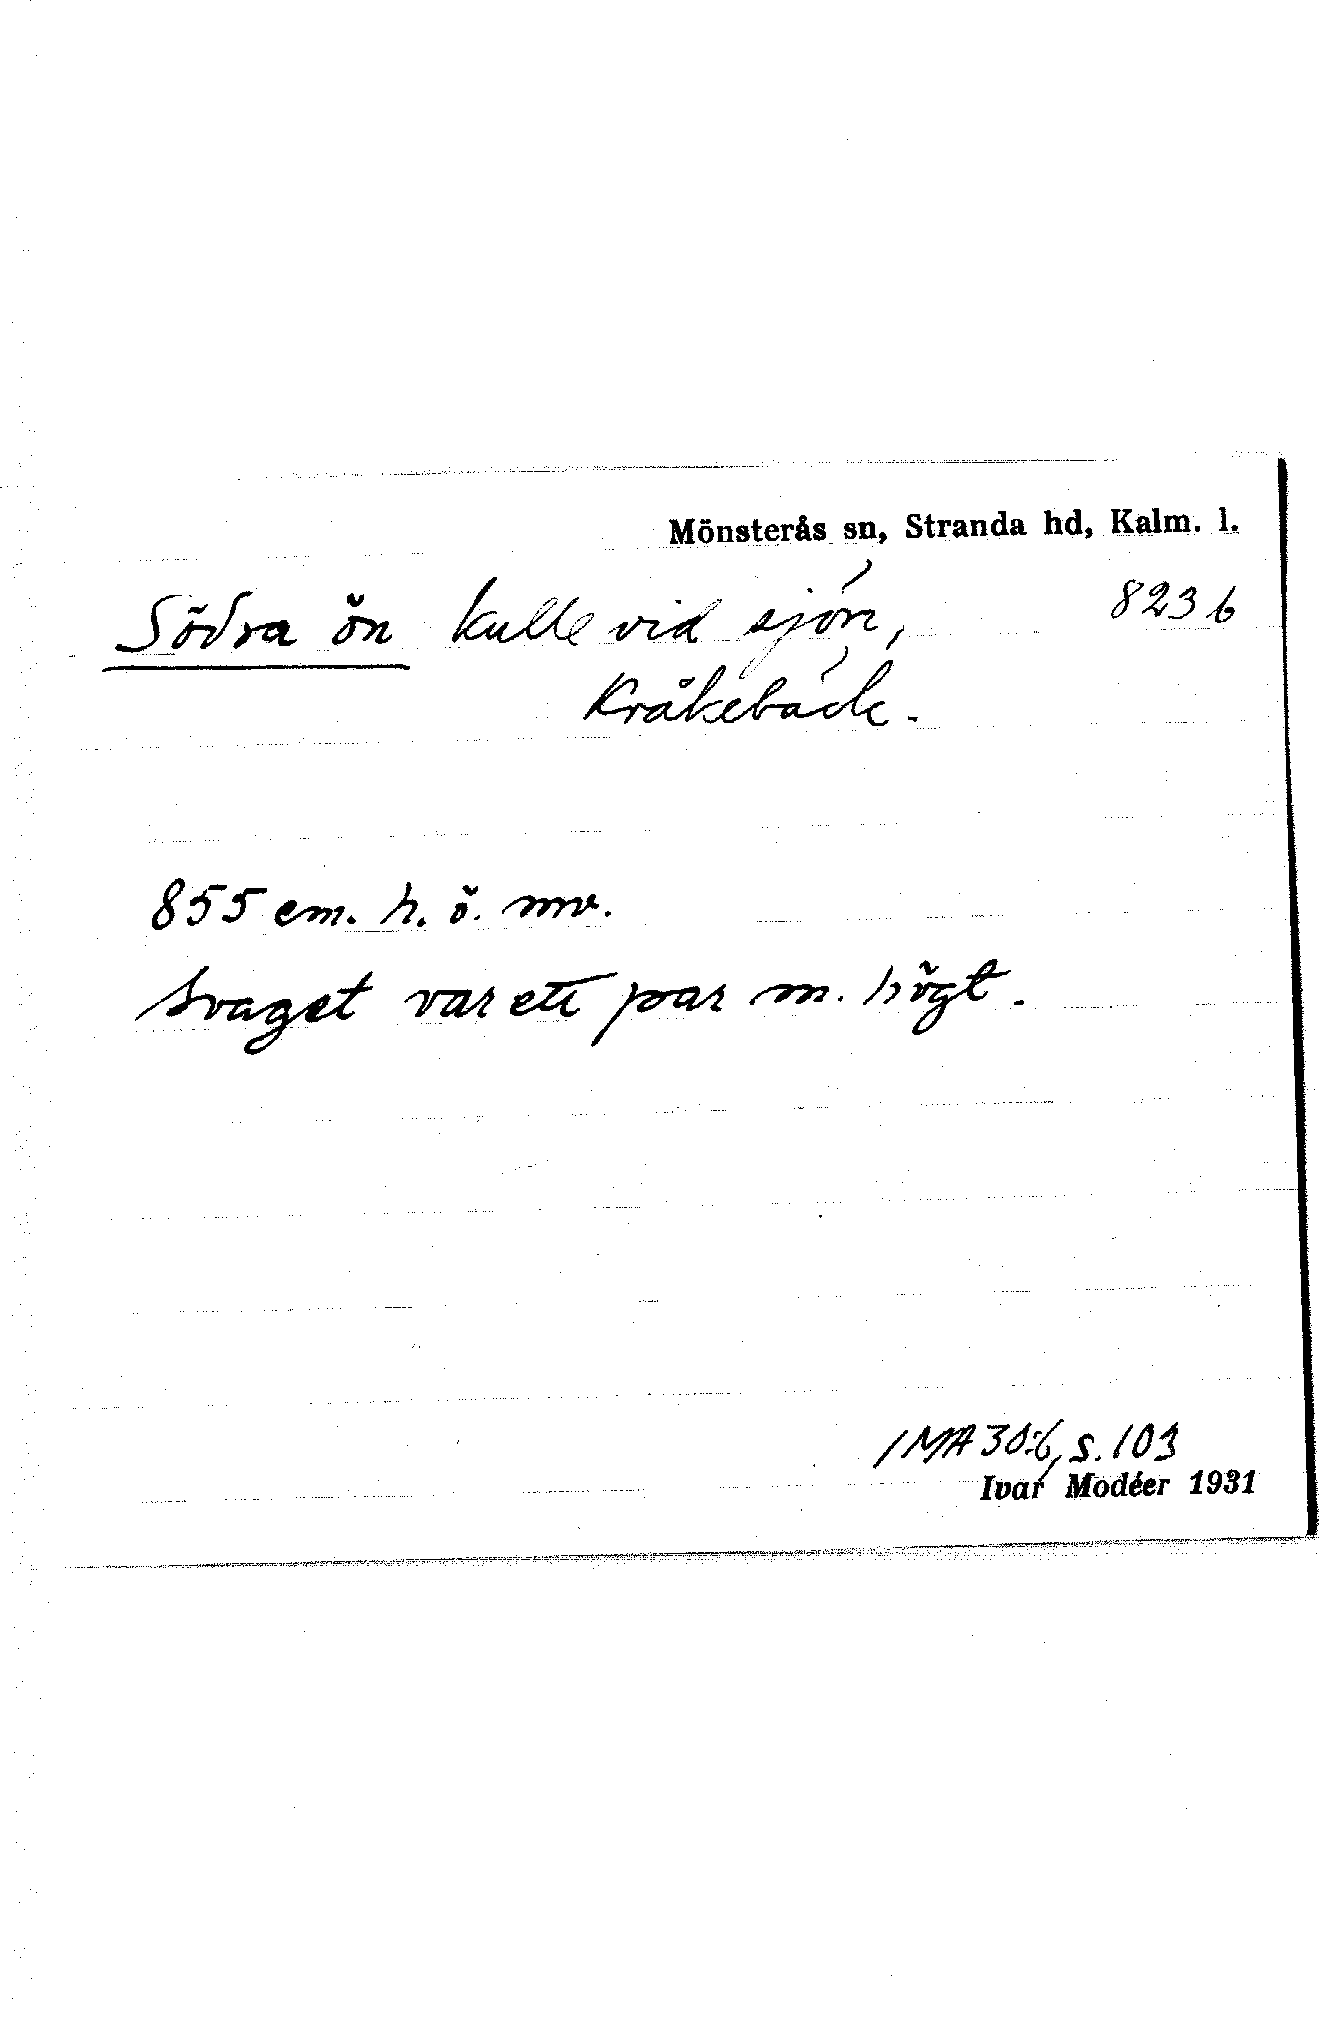 Mönsterås sn, Stranda hd, Kalm. l.
Södra ön kulle vid sjön, 823 b
Kråkebäck.
855 cm. h. ö. mv.
Svaget var ett par m. högt.
IMA 30:6, s. 103
Ivar Modéer 1931